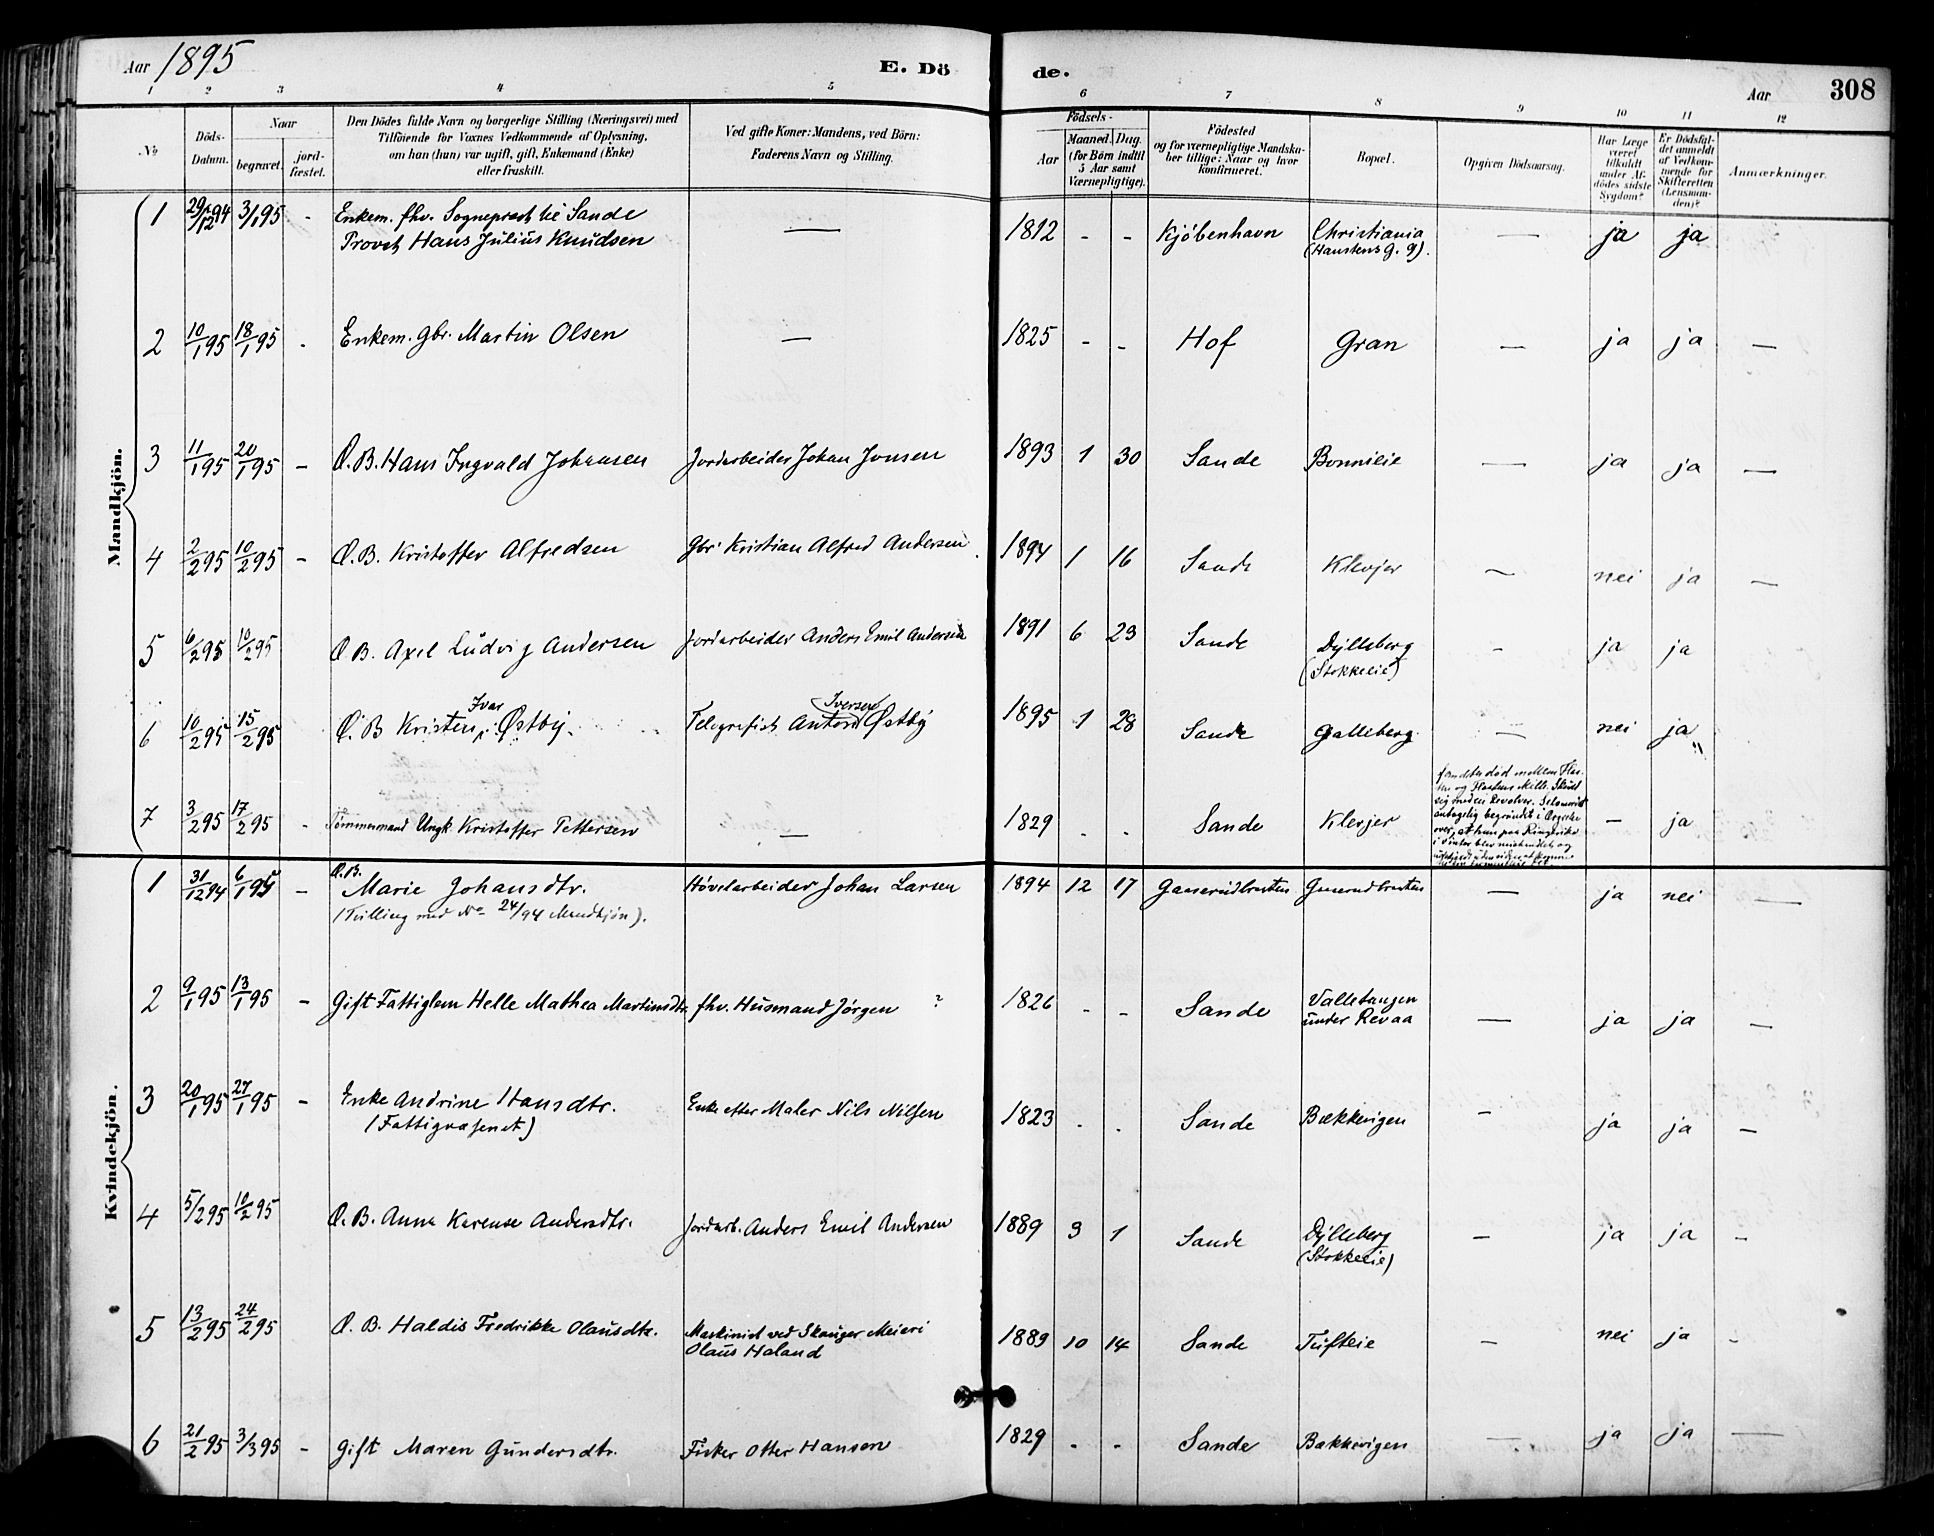 Aar 1895
E. Dö
de.
Aar
308
1 2 3 4 5 6 7 8 9 10 11 12
No
Döds-Datum.
Naar
begravet.
jord-fæstet.
Den Dödes fulde Navn og borgerlige Stilling (Næringsvei) med
Tilföiende for Voxnes Vedkommende af Oplysning,
om han (hun) var ugift, gift, Enkemand (Enke)
eller fraskilt.
Ved gifte Koner: Mandens, ved Börn:
Faderens Navn og Stilling.
Födsels-
Aar
Maaned. Dag.
(for Börn indtil
5 Aar samt
Værnepligtige).
Födested
og for værnepligtige Mandska-
ber tillige: Naar og hvor
konfirmeret.
Bopæl.
Opgiven Dödsaarsag.
Har Læge
været
tilkaldt
under Af-
dödes sidste
Sygdom?
Er Dödsfal-
det anmeldt
af Vedkom-
mende for
Skifteretten
(Lensman-
den)?
Anmærkninger.
Mandkjön.
1 29/12 94 3/1 95 - Enkem. fhv. Sogneprest til Sande
Provst Hans Julius Knudsen — 1812 - - Kjöbenhavn Christiania
(Hanstensg. 9). — ja ja
2 10/1 95 18/1 95 - Enkem. Gbr. Martin Olsen — 1825 - - Hof Gran — ja ja —
3 11/1 95 20/1 95 - Æ. B. Hans Ingvald Johansen Jordarbeider Johan Jonsen 1893 1 30 Sande Bonnileie — ja ja —
4 2/2 95 10/2 95 - Æ. B. Kristoffer Alfredsen Gbr Kristian Alfred Andersen 1894 1 16 Sande Klevjer — nei ja —
5 6/2 95 10/2 95 Æ. B. Axel Ludvig Andersen Jordarbeider Anders Emil Andersen 1891 6 23 Sande Dylleberg
(Stokkeeie) - ja ja
6 10/2 95 15/2 95 Æ. B Kristen Ivar Østby Telegrafist Anton Iversen Østby 1895 1 28 Sande Galleberg — nei ja
7 3/2 95 17/2 95 - Tömmermand Ungk. Kristoffer Pettersen — 1829 - - Sande Klevjer
funden död mellem
og Mölle. Skudt
sig med en Revolver. Selvmord
antagelig begrundet i Ærgrelse
over, at han paa Ringerike
i Vinter blev mishandlet og
— ja
Kvindekjön.
1 31/12 94 6/1 95 - Æ. B.
Marie Johansdtr.
(Tvilling med No 24/94 Mandkjön). Hövelarbeider Johan Larsen 1894 12 17 Gaaserudbraaten Gaaserudbraaten — ja nei —
2 9/1 95 13/1 95 - Gift Fattiglem Helle Mathea Martinsdtr. fhv. Husmand Jörgen ? 1826 - - Sande Valletangen
under Revaa — ja ja —
3 20/1 95 27/1 95 - Enke Andrine Hansdtr.
(Fattigvæsenet) Enke efter Maler Nils Nilsen 1823 - - Sande Bækkevigen - ja ja -
4 5/2 95 10/2 95 Æ. B. Anna Karense Andersdtr. Jordarb. Anders Emil Andersen 1889 3 1 Sande Dylleberg
(Stokkeeie) - ja ja -
5 13/2 95 24/2 95 Æ. B. Haldis Fredrikke Olausdtr. Maskinist ved Skauger Meieri
Olaus Haland 1889 10 14 Sande Tufteie - nei ja -
6 21/2 95 3/3 95 - Gift Maren Gundersdtr. Fisker Otter Hansen 1829 - - Sande Bækkevigen — ja ja —